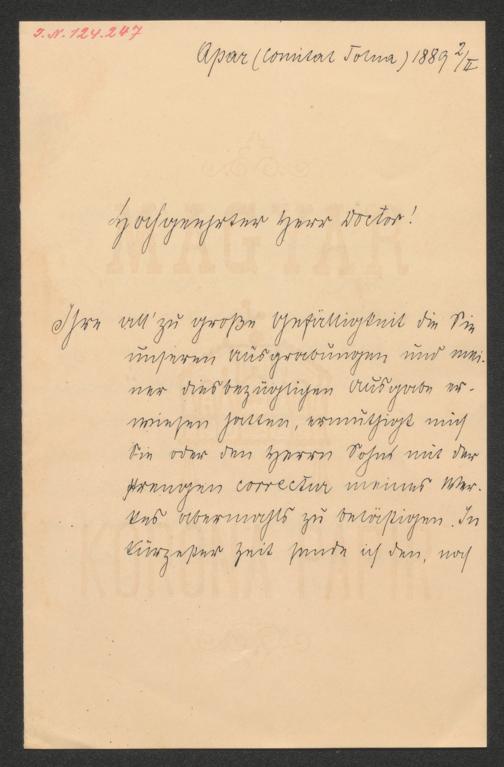 I.N. 124.247
Apar (Comitat Tolna) 1889 2/II
Hochgeehrter Herr Doctor!
Ihre all'zu große Gefälligkeit die Sie
unseren Ausgrabungen und mei-
ner diesbezügligen Ausgabe er-
wiesen hatten, ermuthigt mich
Sie oder den Herrn Sohne mit der
strengen correctur meines Wer-
kes abermahls zu belästigen. In
kürzester Zeit sende ich den, noch
MAGYAR
KORONA PAPIR